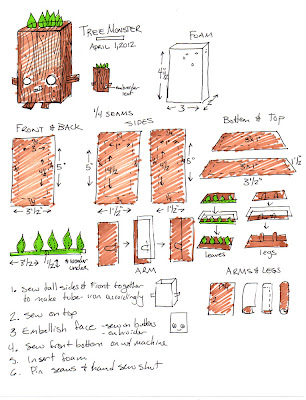 TREE MONSTER
APRIL 1, 2012
FOAM
4 1/2
3
2
embroider
1/4 SEAMS
FRONT & BACK
SIDES
BOTTOM & TOP
5"
3 1/2"
5"
4 1/2
1 1/2"
4 1/2
5"
1 1/2"
1 1/2"
3 1/2"
leaves
legs
3 1/2
1 1/2
under
ARM
ARMS & LEGS
1. Sew tall sides & front together
to make tube iron accordingly
2. Sew on top
3 Embellish face - sew on buttons
embroider
4. Sew front bottom on w/ machine
5. Insert foam
6. Pin seams & hand sew shut